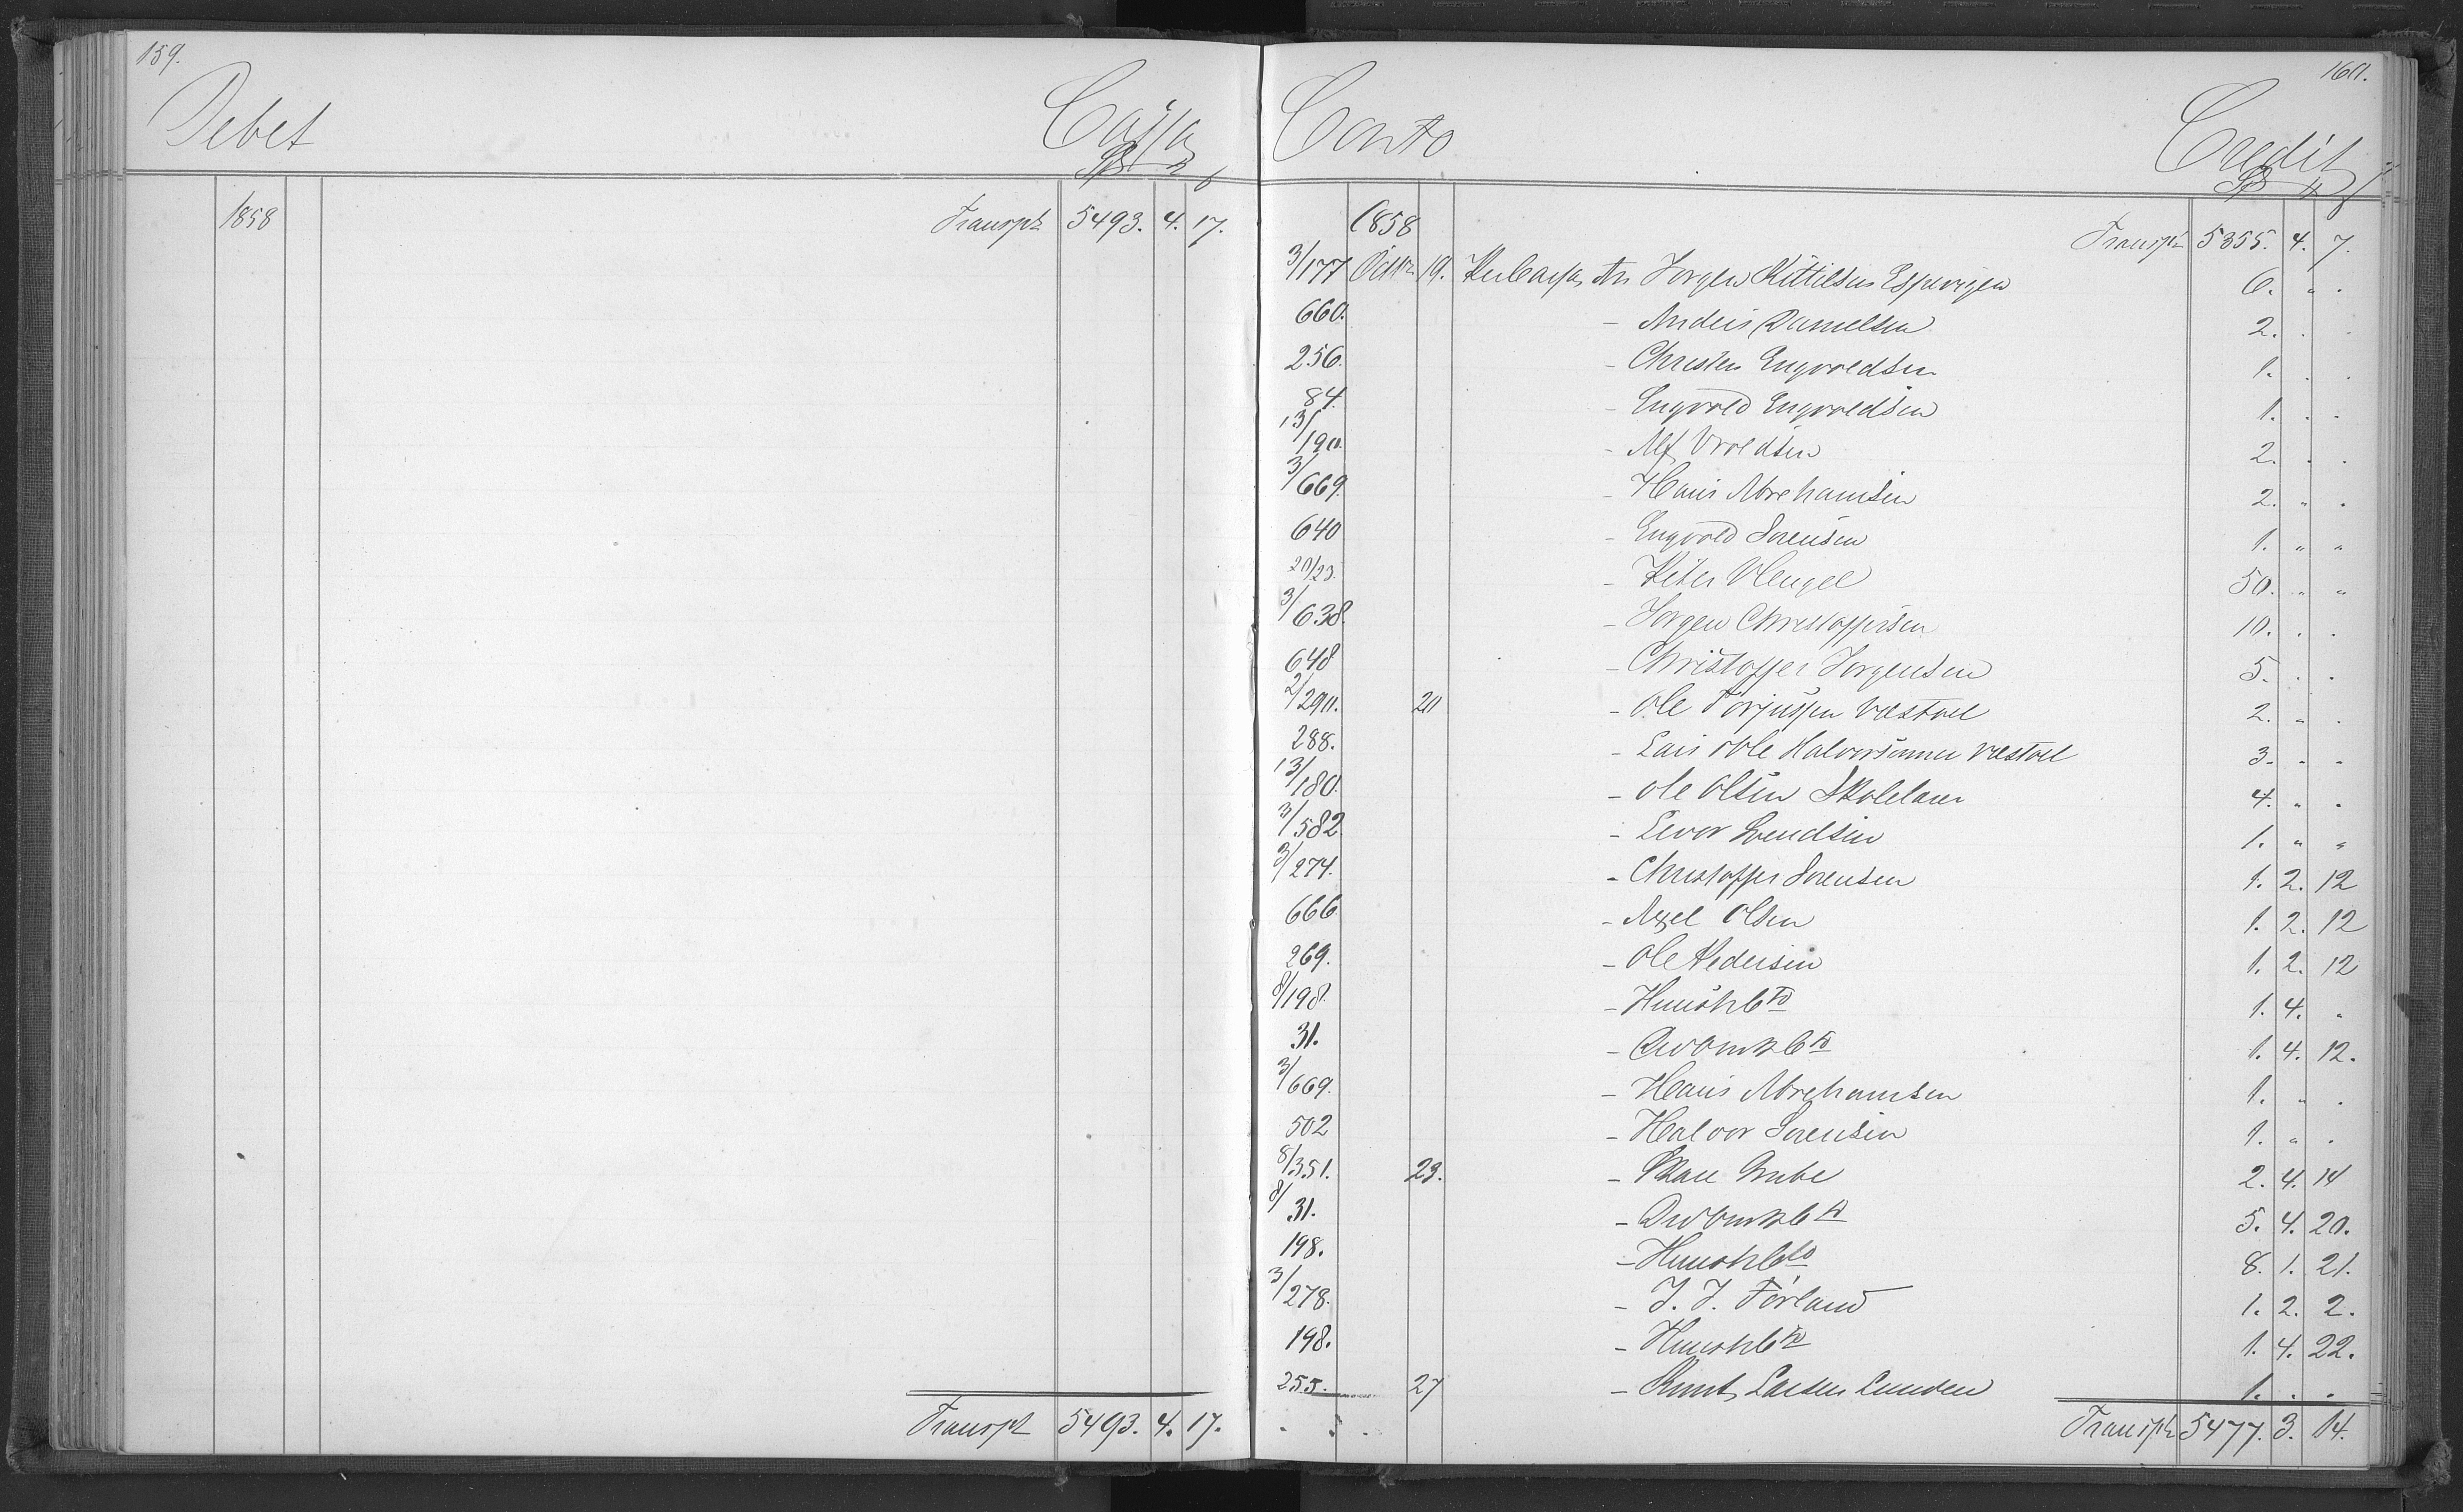 159.
Debet Cassa
1858 Transpt 5493. 4. 17.
Transpt 5493. 4. 17.
160.
Conto Credit
1858 Transpt 5355. 4. 7.
3/177 Octbr 19. Per Cassa An Jørgen Kittilsen 6. " .
660. - Anders Danielsen 2. . .
256. - Christen Engvoldsen 1. . .
84. - Engvold Engvoldsen 1. . .
13/190. - Alf Vroldsen 2. . .
3/669. - Hans Abrahamsen 2. " .
640 - Engvold Sørensen 1. " "
20/23. - Peter 50. " "
3/638. - Jørgen Christoffersen 10. . .
648 - Christoffer Jørgensen 5. . .
2/290. 20 - Ole Torjussen Væstøel 2. " .
288. - Lars & Ole Halvorsønner Væstøel 3. " .
13/180. - Ole Olsen Skolelærer 4. " .
3/582 - Evor Svendsen 1. " "
3/274. - Christoffer Sørensen 1. 2. 12
666. - Axel Olsen 1. 2. 12
269. - Ole Pedersen 1. 2. 12
8/198. - HuushCto 1. 4. "
31. - DrvømkCto 1. 4. 12.
3/669. - Hans Abrahamsen 1. " .
502 - Halvor Sørensen 1. " .
8/351. 23. - Grube 2. 4. 14
8/31. - DrvømkCto 5. 4. 20.
198. - HuushCto 8. 1. 21.
3/278. - J. J. Førland 1. 2. 2.
198. - HuushCto 1. 4. 22.
255. 27 - Knut Larsen Lunden 1. . .
Transpt 5477. 3. 14.